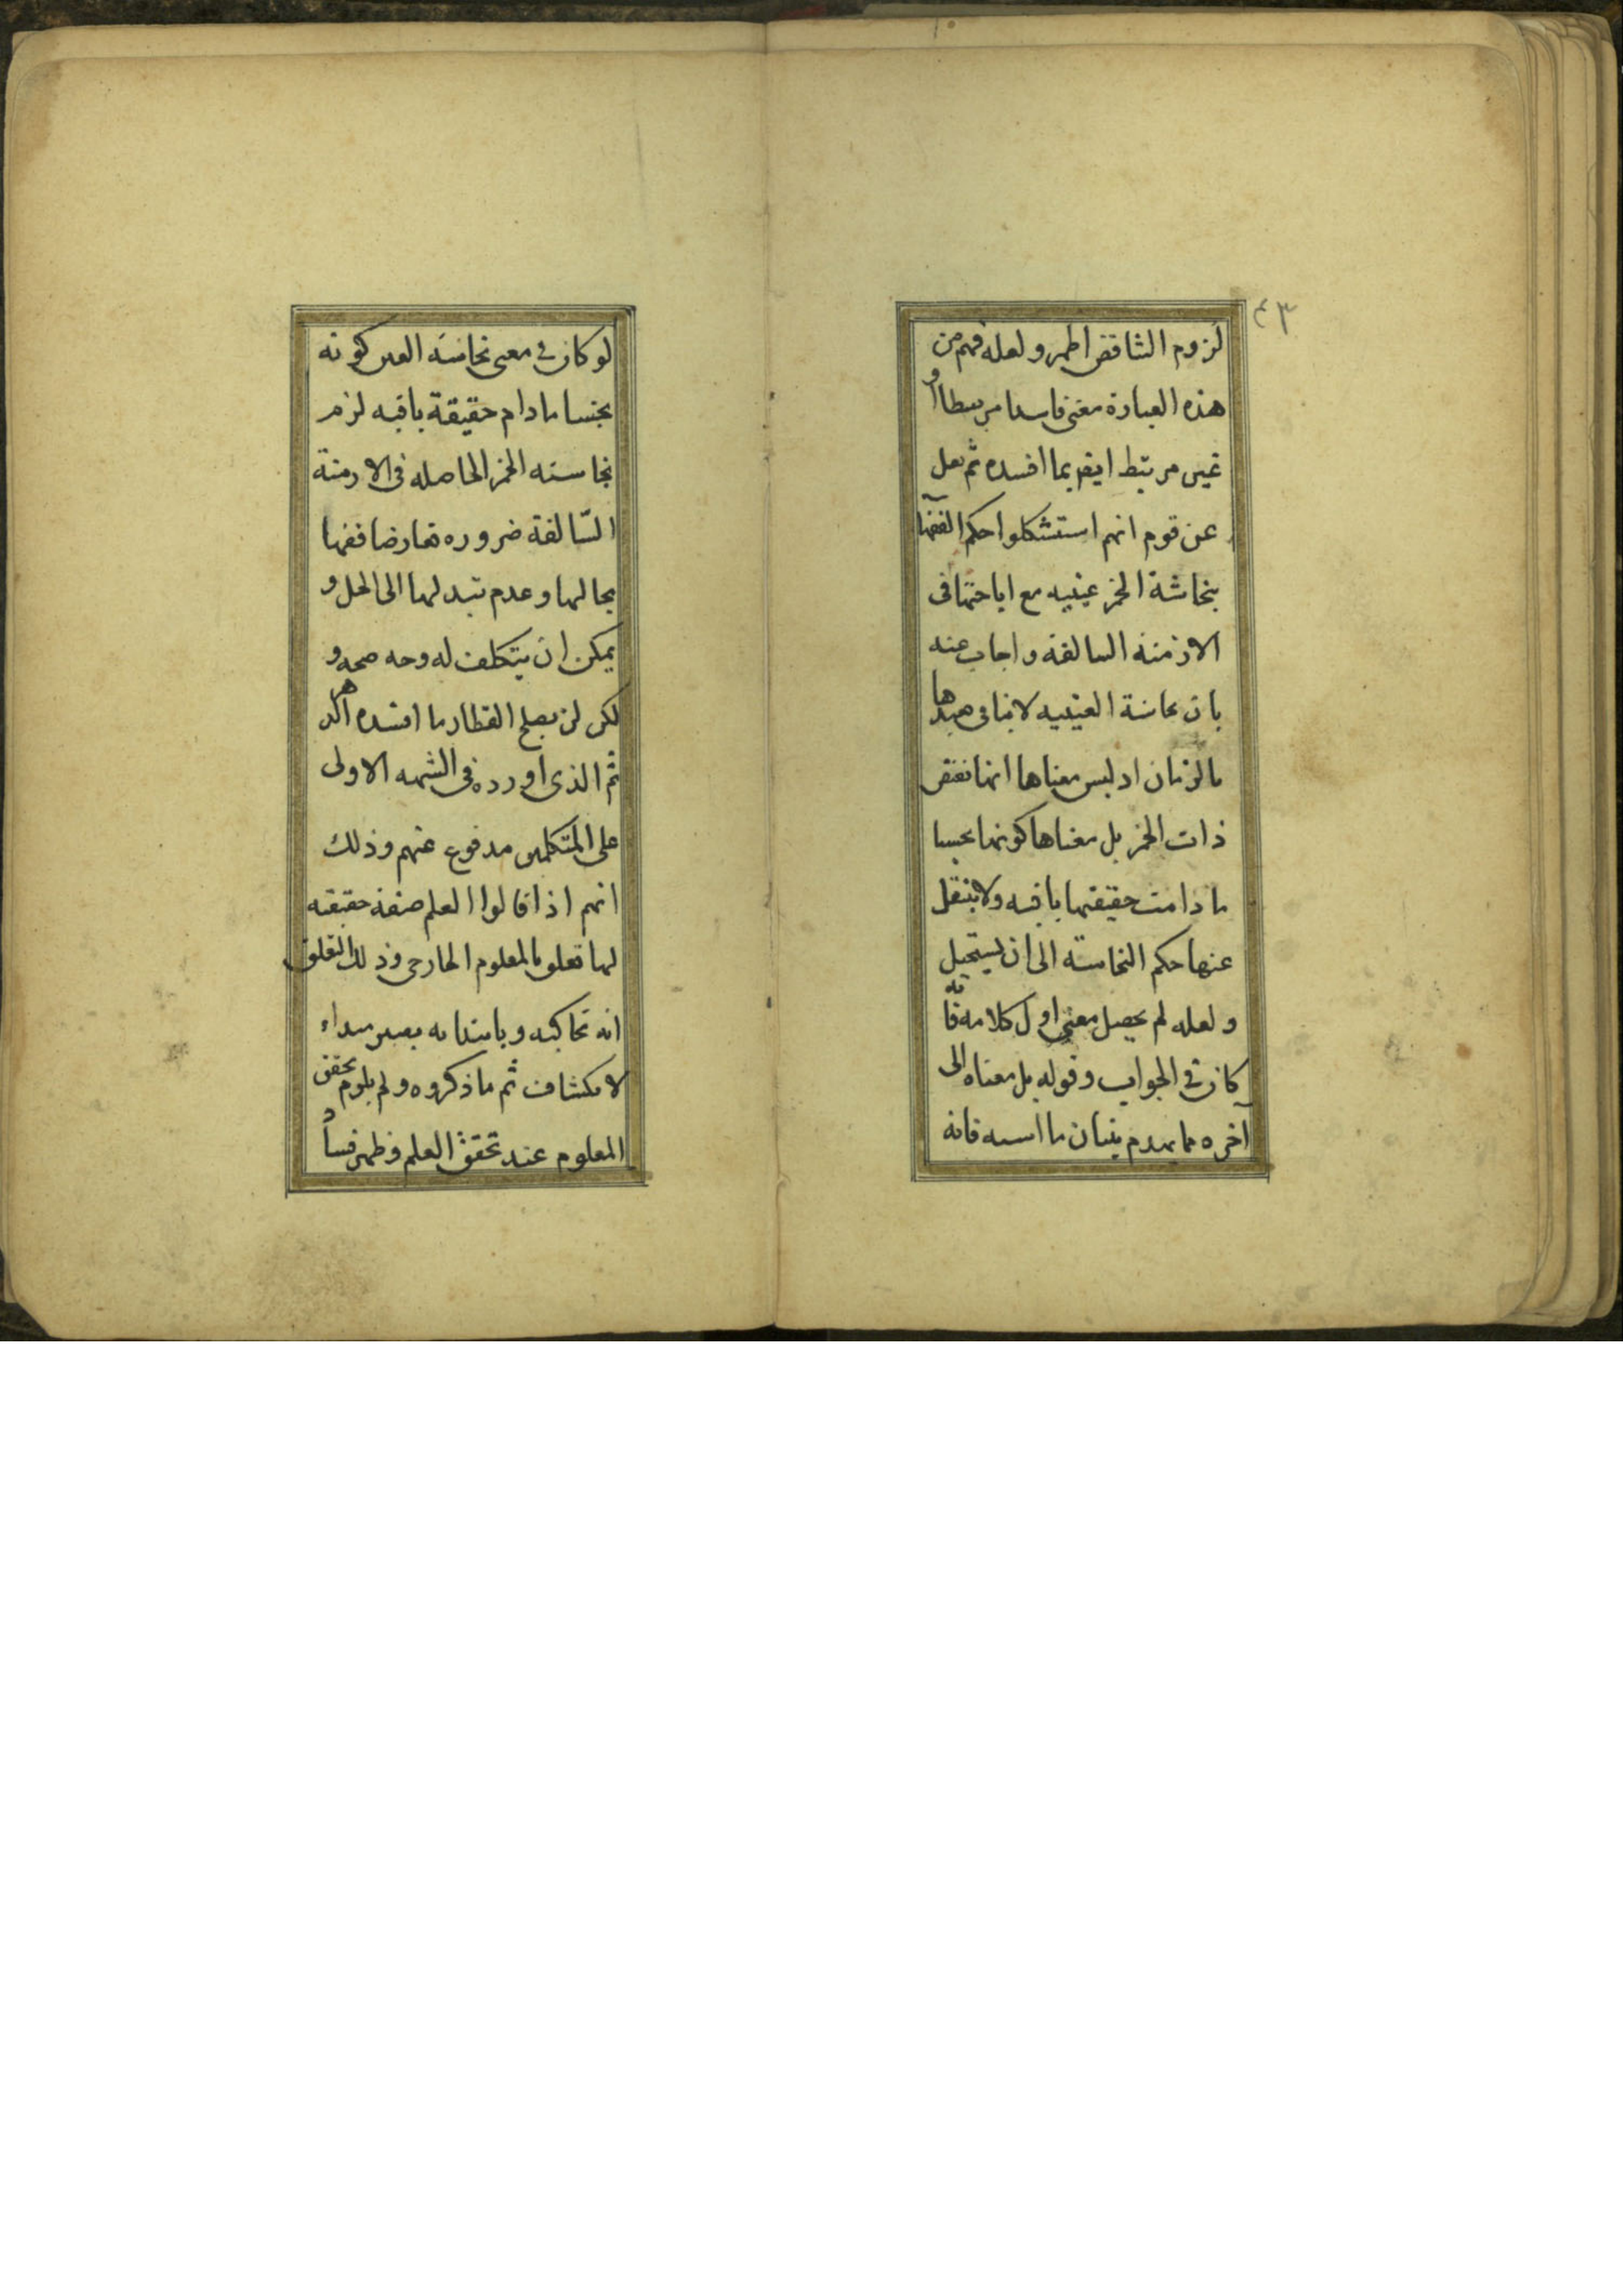 ٤٣
لزوم التناقض اظهر ولعله فهم من
هذه العبارة معنى فاسدا مرتبطا او
غير مرتبط ايضا بما افسده ثم نقل
عن قوم انهم استشكلوا حكم الفقهاء
بنجاسة الخمر عينيه مع اباحتها فى
الازمنة السالفة واجاب عنه
بان نجاسة العينيه لا ينافى
بالزمان اذ ليس معناها انها تقتضى
ذات الخمر بل معناها كونها نجسا
ما دامت حقيقتها باقيه ولا ينتقل
عنها حكم النجاسة الى ان يستحيل
ولعله لم يحصل معنى اول كلامه فانه
كان فى الجواب وقوله بل معناه الى
آخره مما يهدم بنيان ما اسسه فانه
لو كان فى معنى نجاسة العين كونه
نجسا ما دام حقيقة باقيه لزم
نجاسته الخمر الحاصله فى الازمنة
السّالفة ضروره
بحالها وعدم تبدلها الى الخل و
يمكن ان يتكلف له وجه صحه و
لكن لن يصلح العطار ما افسده الدهر
ثم الذى اورده فى الشبهه الاولى
على المتكلمين مدفوع عنهم وذلك
انهم اذا قالوا العلم صفة حقيقيه
لها تعلق بالمعلوم الخارجى وذلك التعلق
انه يصير مبداء
لانكشاف ثم ما ذكروه ولم يلزم تحقق
المعلوم عند تحقق العلم فظهر فساد